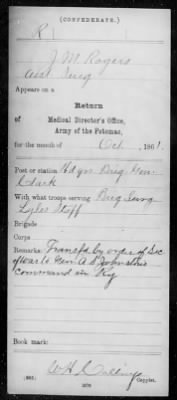 (CONFEDERATE.)
R
J. M. Rogers
Asst Surg
Appears on a
Return
of
Medical Director's Office,
Army of the Potomac,
for the month of Oct, 1861.
Post or station Hdqrs Brig Gen
Clark
With what troops serving Brig Surg
Lyles Staff
Brigade
Corps
Remarks: Transfd by order of Sec
of war to Gen A S Johnstons
command in Ky
Book mark:
(635)
Copyist.